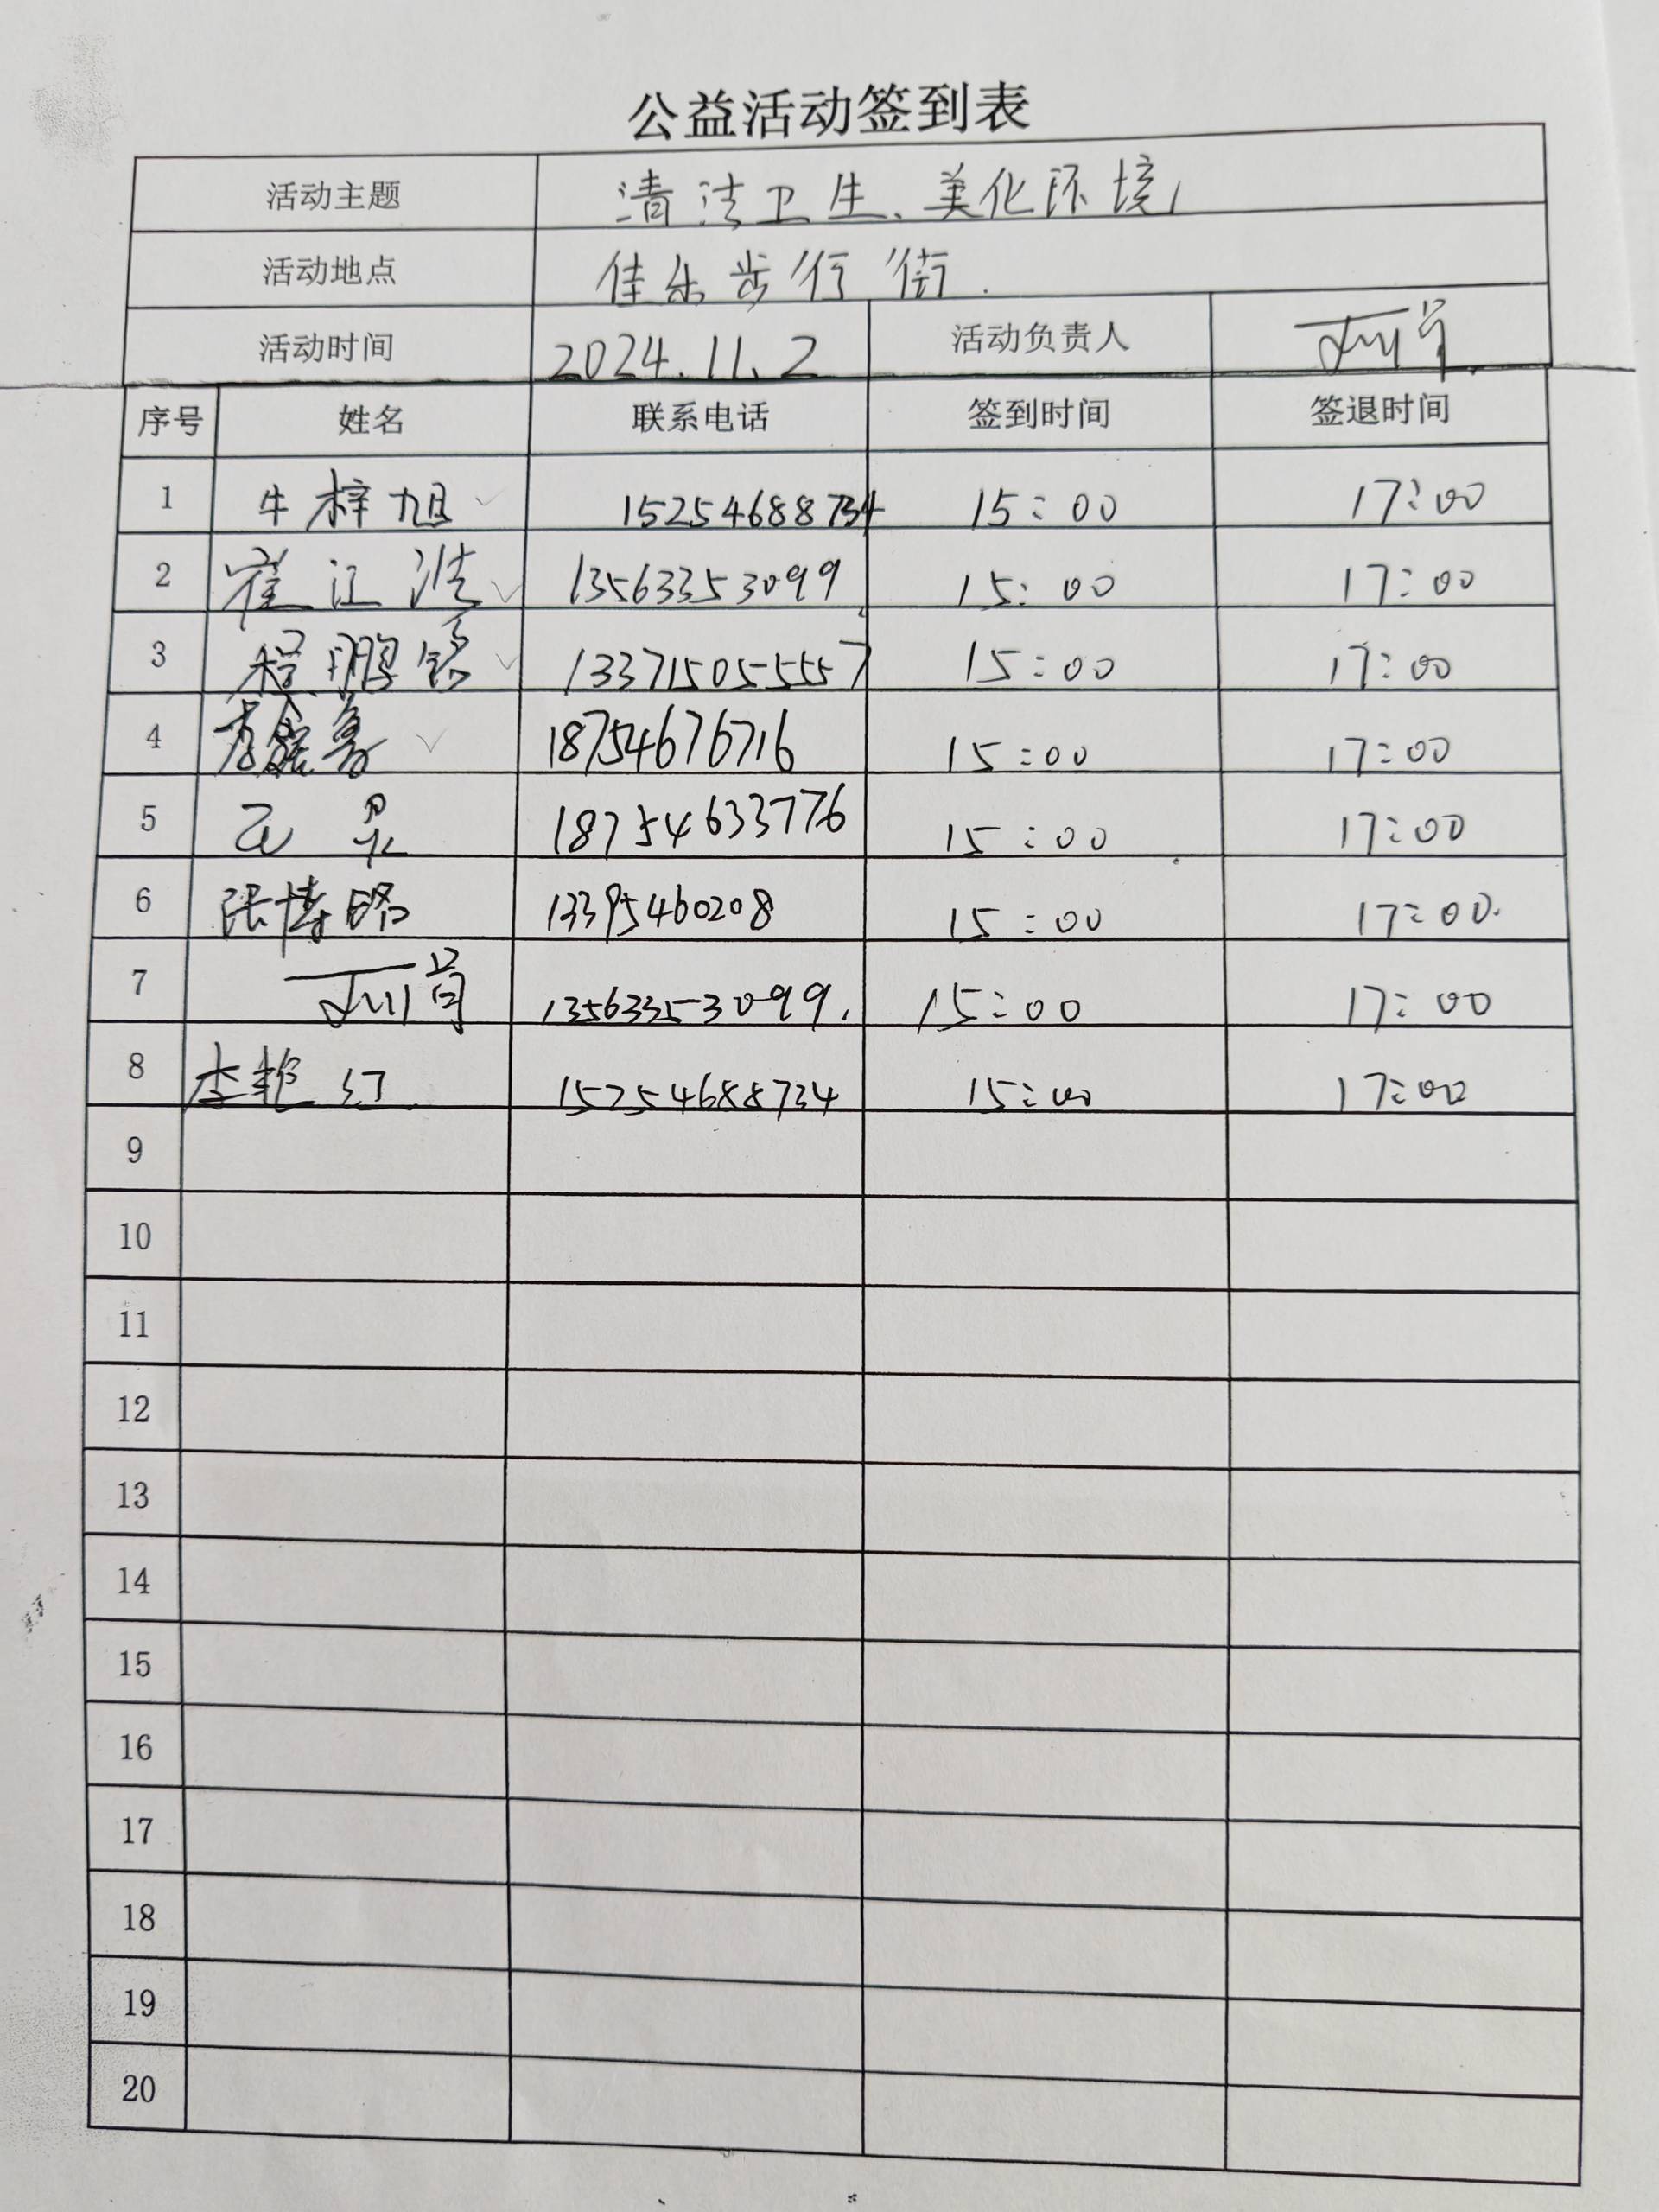 公益活动签到表
活动主题 清洁卫生、美化环境
活动地点 佳乐步行街.
活动时间 2024.11.2 活动负责人
序号 姓名 联系电话 签到时间 签退时间
1 牛梓旭 ✓ 15254688734 15:00 17:00
2 崔江浩 ✓ 13563353099 15:00 17:00
3 程鹏铭 ✓ 13371505557 15:00 17:00
4 ✓ 18754676716 15:00 17:00
5 18754633776 15:00 17:00
6 张博铭 13395460208 15:00 17:00.
7 13563353099. 15:00 17:00
8 李艳红 15254688734 15:00 17:00
9
10
11
12
13
14
15
16
17
18
19
20